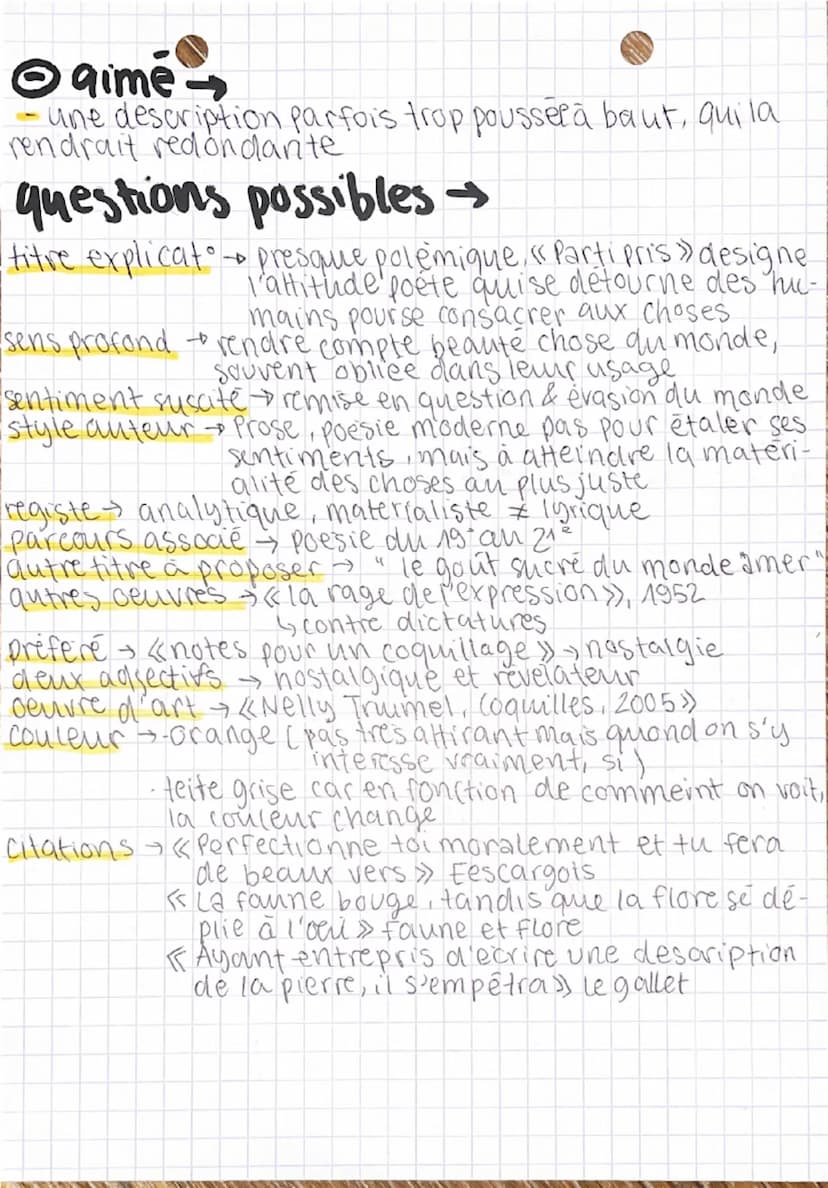 ⊖ aimé →
- une description parfois trop poussée à baut, qui la
rendrait redondante
questions possibles →
titre explicat° → presque polémique, « Parti pris » designe
l'attitude poète qui se détourne des hu-
mains pour se consacrer aux choses
sens profond → rendre compte beauté chose du monde,
souvent obliée dans leur usage
sentiment suscité → remise en question & évasion du monde
style auteur → Prose, poésie moderne pas pour étaler ses
sentiments, mais à atteindre la matéri-
alité des choses au plus juste
registe → analytique, materialiste ≠ lyrique
parcours associé → poesie du 19e au 21e
autre titre à proposer → " le goût sucré du monde amer "
autres oeuvres → « la rage de l'expression », 1952
↳ contre dictatures
préferé → « notes pour un coquillage » → nostalgie
deux adjectifs → nostalgique et révelateur
oeuvre d'art → « Nelly Trumel, Coquilles, 2005 »
couleur → - orange ( pas très attirant mais quand on s'y
interesse vraiment, si )
· teite grise car en fonction de commeint on voit,
la couleur change
citations → « Perfectionne toi moralement et tu fera
de beaux vers » Eescargois
« La faune bouge, tandis que la flore se dé-
plie à l'oeil » faune et flore
« Ayant entrepris d'écrire une description
de la pierre, il s'empétra » le gallet